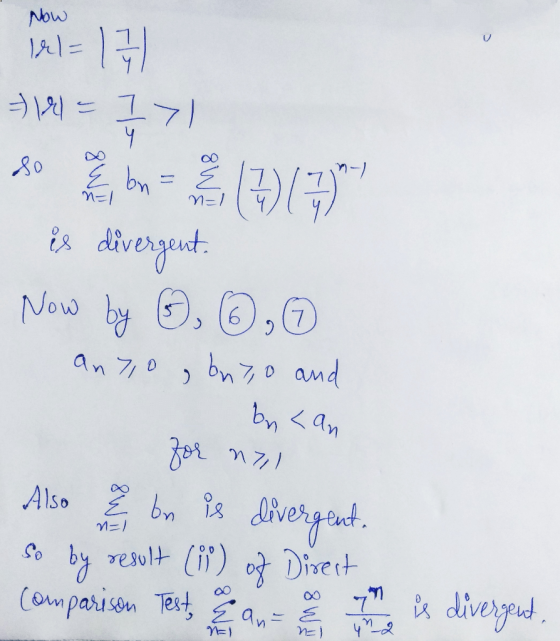 Now
|r| = |7/4|
⇒ |r| = 7/4 > 1
so ∞Σn=1 bn = ∞Σn=1 (7/4)(7/4)^n-1
is divergent.
Now by ⑤, ⑥, ⑦
an ⩾ 0 , bn ⩾ 0 and
bn < an
for n ⩾ 1
Also ∞Σn=1 bn is divergent.
So by result (ii) of Direct
Comparison Test, ∞Σn=1 an = ∞Σn=1 7^n/4^n-2 is divergent.